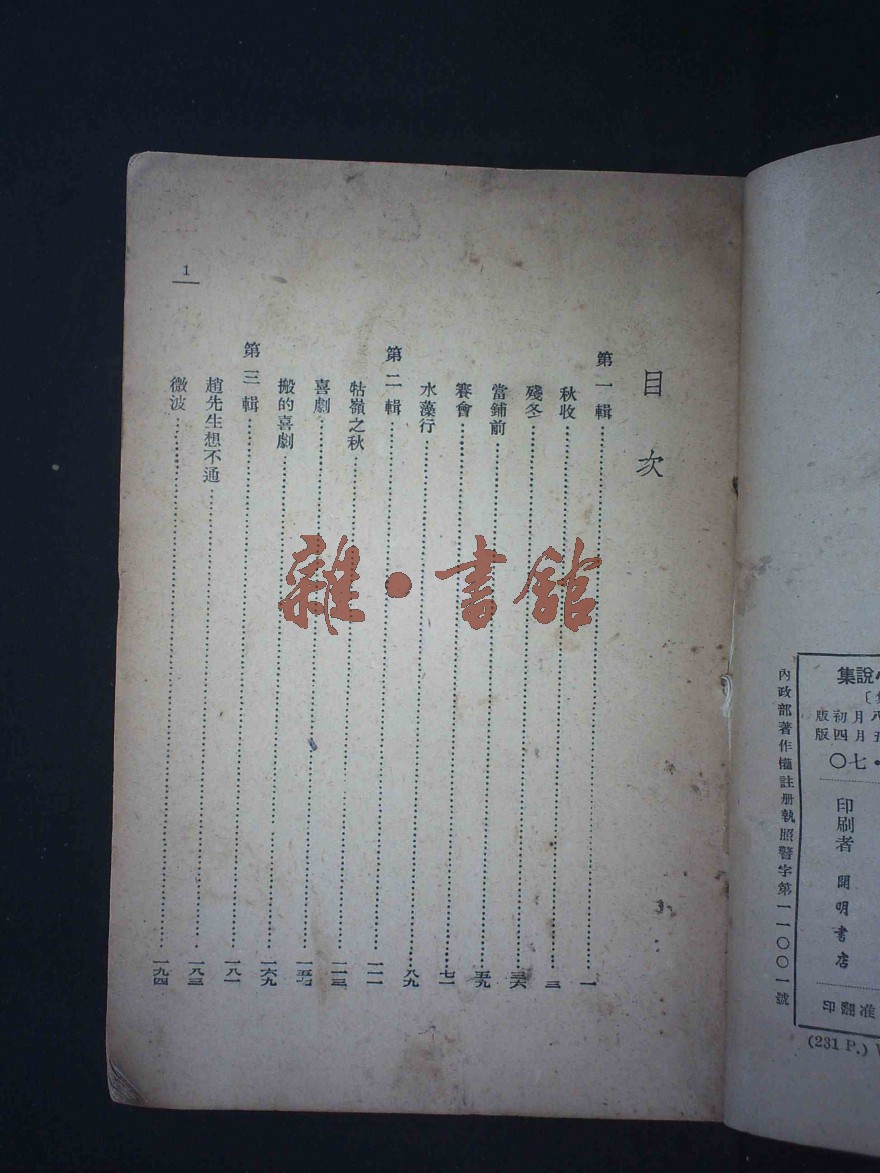 目次
第一輯 一
秋收 三
殘冬 三六
當鋪前 五九
賽會 七一
水藻行 八九
第二輯 一一一
牯嶺之秋 一一三
喜劇 一五七
搬的喜劇 一六九
第三輯 一八一
趙先生想不通 一八三
微波 一九四
1
雜·書館
說集
月初版
月四版
·七〇
印刷者 開明書店
准翻印
內政部著作權註册執照警字第一一〇〇一號
(231 P.)